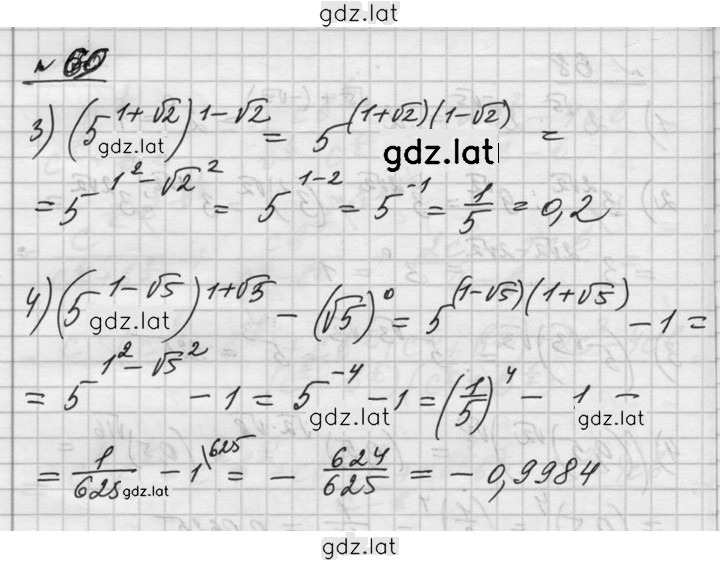 gdz.lat
№ 60
3) (5^(1+√2))^(1-√2) = 5^((1+√2)(1-√2)) =
gdz.lat
gdz.lat
= 5^(1²-√2²) = 5^(1-2) = 5^(-1) = 1/5 = 0,2
4) (5^(1-√5))^(1+√5) - (√5)^0 = 5^((1-√5)(1+√5)) - 1 =
gdz.lat
= 5^(1²-√5²) - 1 = 5^(-4) - 1 = (1/5)^4 - 1 =
gdz.lat
gdz.lat
= 1/625 - 1\625 = - 624/625 = - 0,9984
gdz.lat
gdz.lat